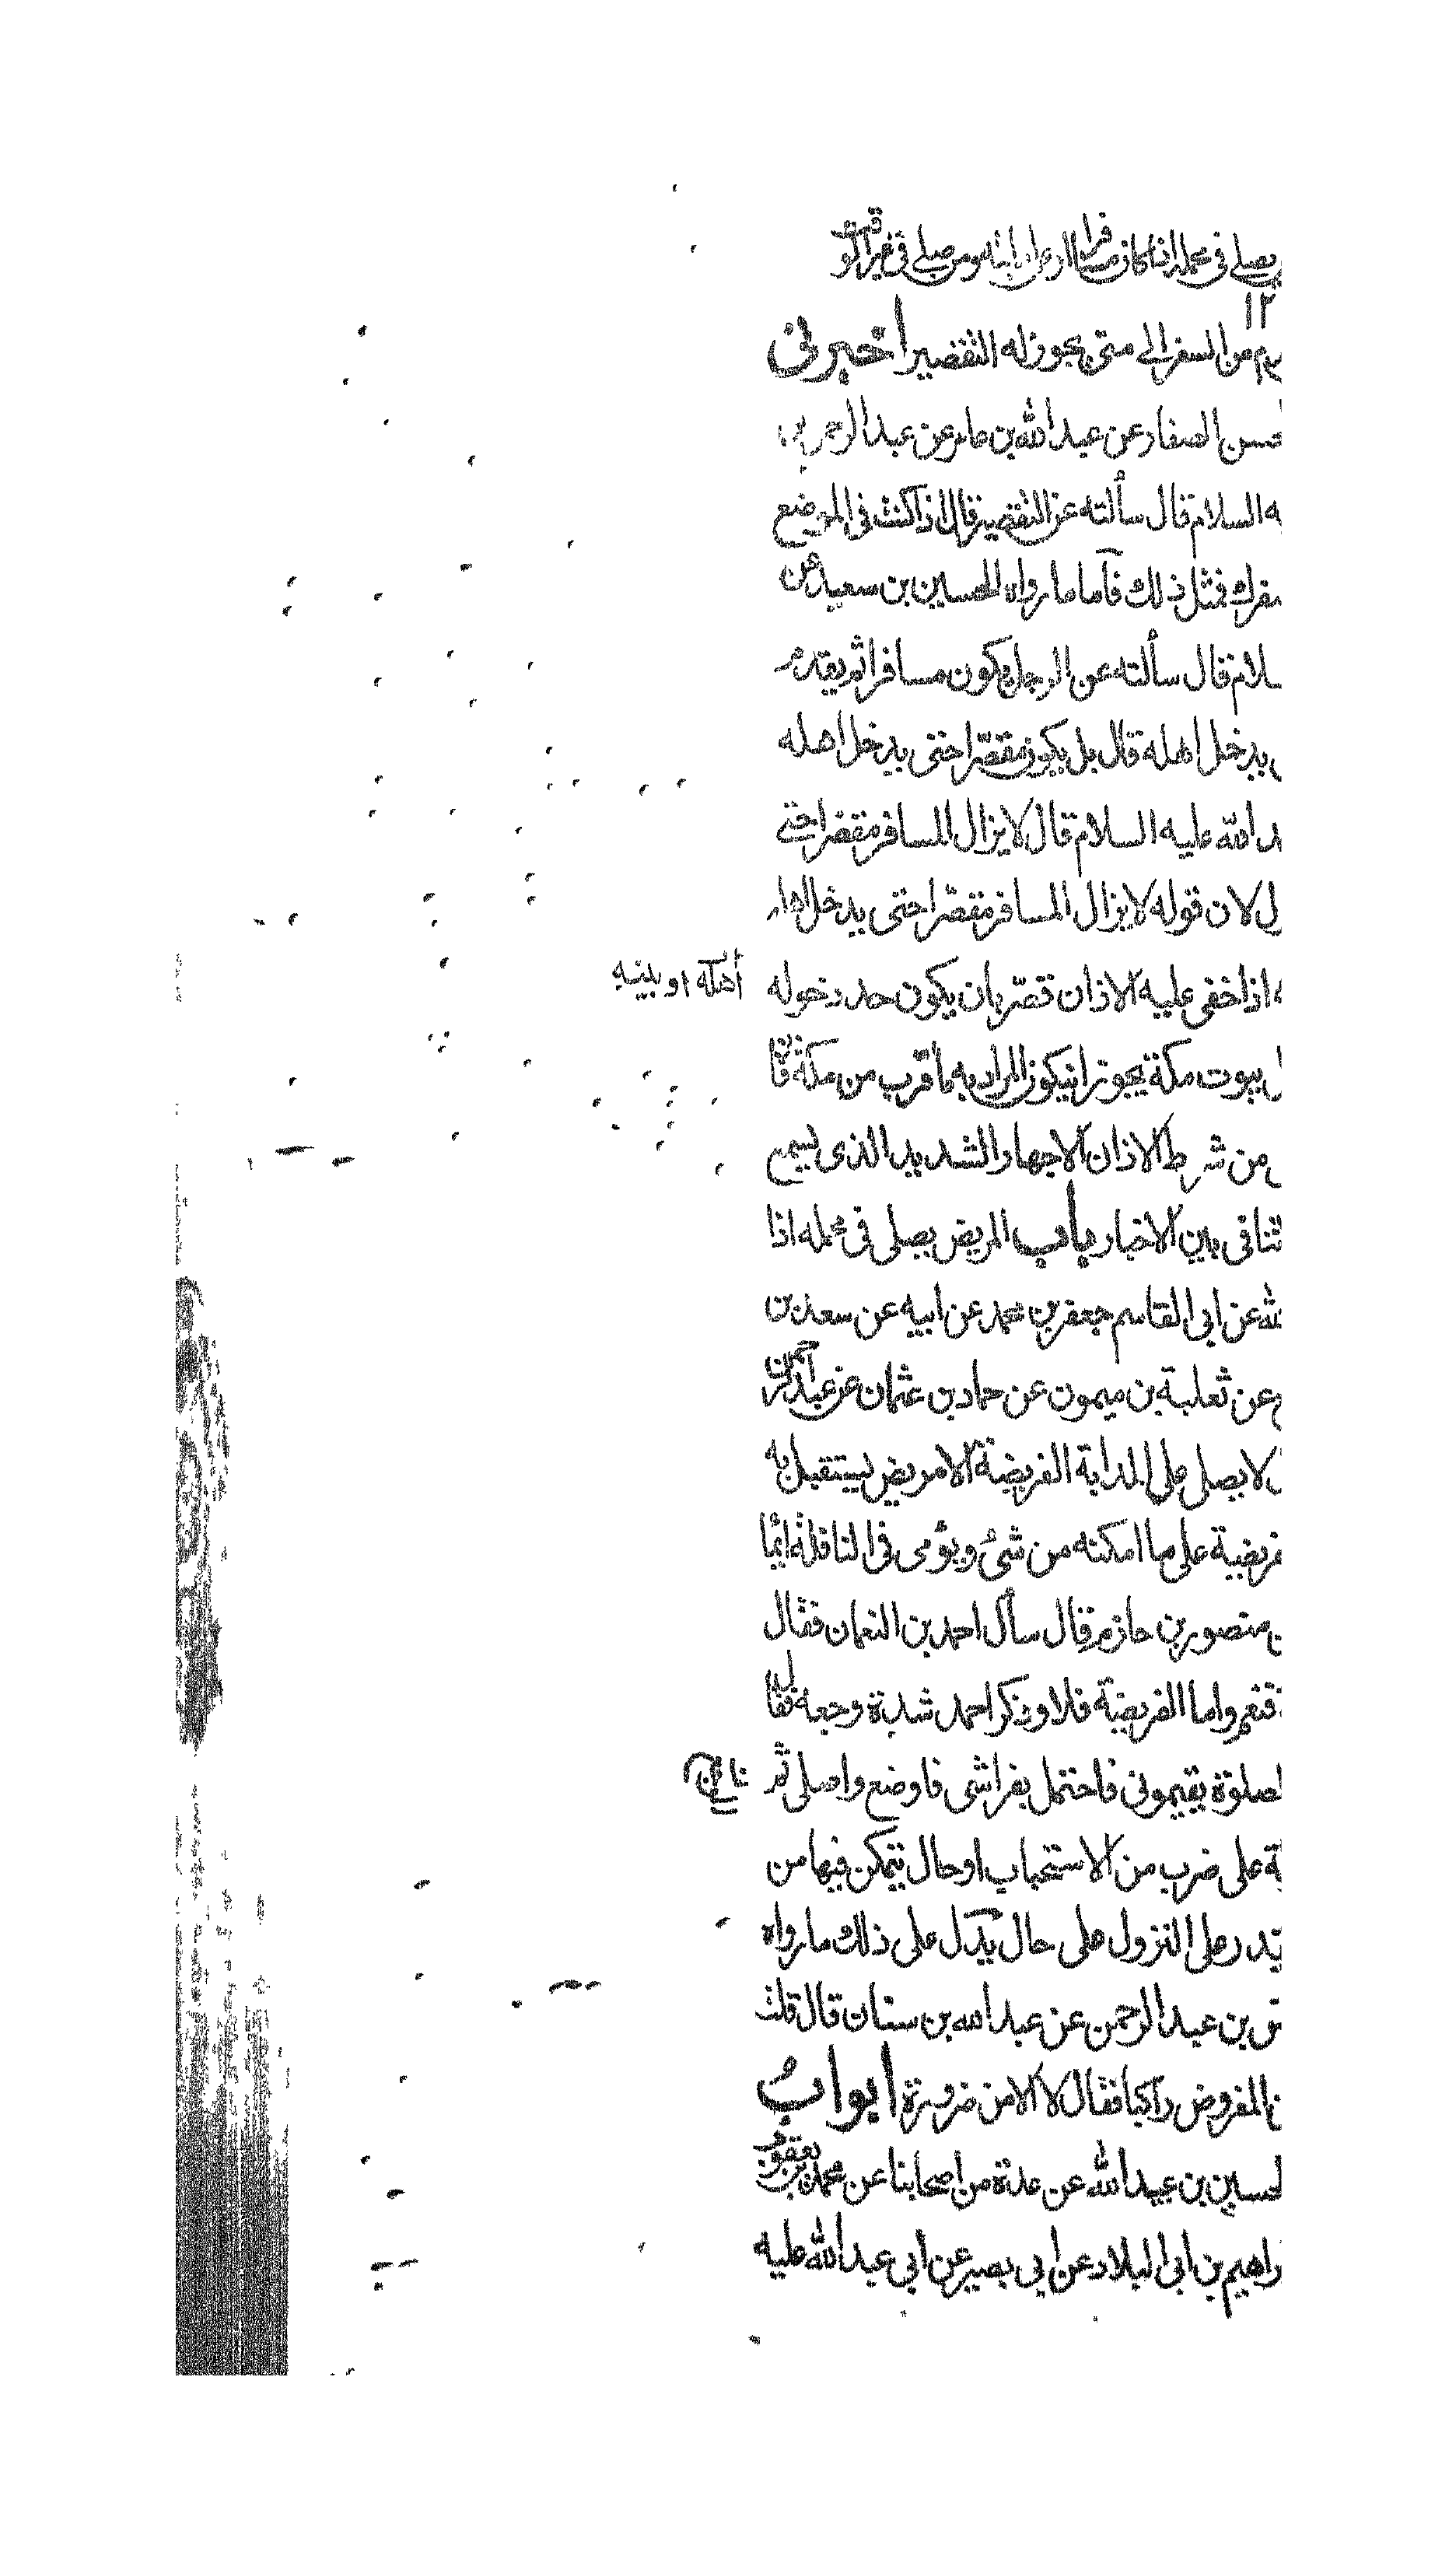 يصلى فى محمله اذا كان مسافرا او على دابته ومن صلى فى غير الو
١٢
من السفر الى متى يجوز له التقصير اخبرنى
حسن الصفار عن عبد الله بن عامر عن عبد الرحمن
ه السلام قال سألته عن التقصير قال اذا كنت فى الموضع
سفرك فمثل ذلك فاما ما رواه الحسين بن سعيد عن
سلام قال سألته عن الرجل يكون مسافرا ثم يقدم
يدخل اهله قال بل يكون مقصرا حتى يدخل اهله
د الله عليه السلام قال لا يزال المسافر مقصرا حتى
ل لان قوله لا يزال المسافر مقصرا حتى يدخل اهله
ه اذا خفى عليه الاذان قصر بان يكون حد دخوله
أهله او بيته
ل بيوت مكة يجوز ان يكون المراد به ما قرب من مكة فان
من شرط الاذان الاجهار الشديد الذى يسمع
تنافى بين الاخبار باب المريض يصلى فى محمله اذا
لله عن ابى القاسم جعفر بن محمد عن ابيه عن سعد بن
عن ثعلبة بن ميمون عن حماد بن عثمان عن عبد الرحمن
لا يصلى على الدابة الفريضة الا مريض يستقبل به
فريضة على ما امكنه من شئ ويؤمى فى النافلة ايما
ن منصور بن حازم قال سأل احمد بن النعمان فقال
ة فنعم واما الفريضة فلا وذكر احمد شدة وجعه فقال
لصلوة يقيمونى فاحتمل بفراشى فاوضع واصلى ثم
ة على ضرب من الاستحباب او حال يتمكن فيها من
يقدر على النزول على حال يدل على ذلك ما رواه
بن عبد الرحمن عن عبد الله بن سنان قال قلت
المفروض راكبا فقال لا الا من ضرورة ابواب
لحسين بن عبيد الله عن عدة من اصحابنا عن محمد بن يعقوب
راهيم بن ابى البلاد عن ابى بصير عن ابى عبد الله عليه